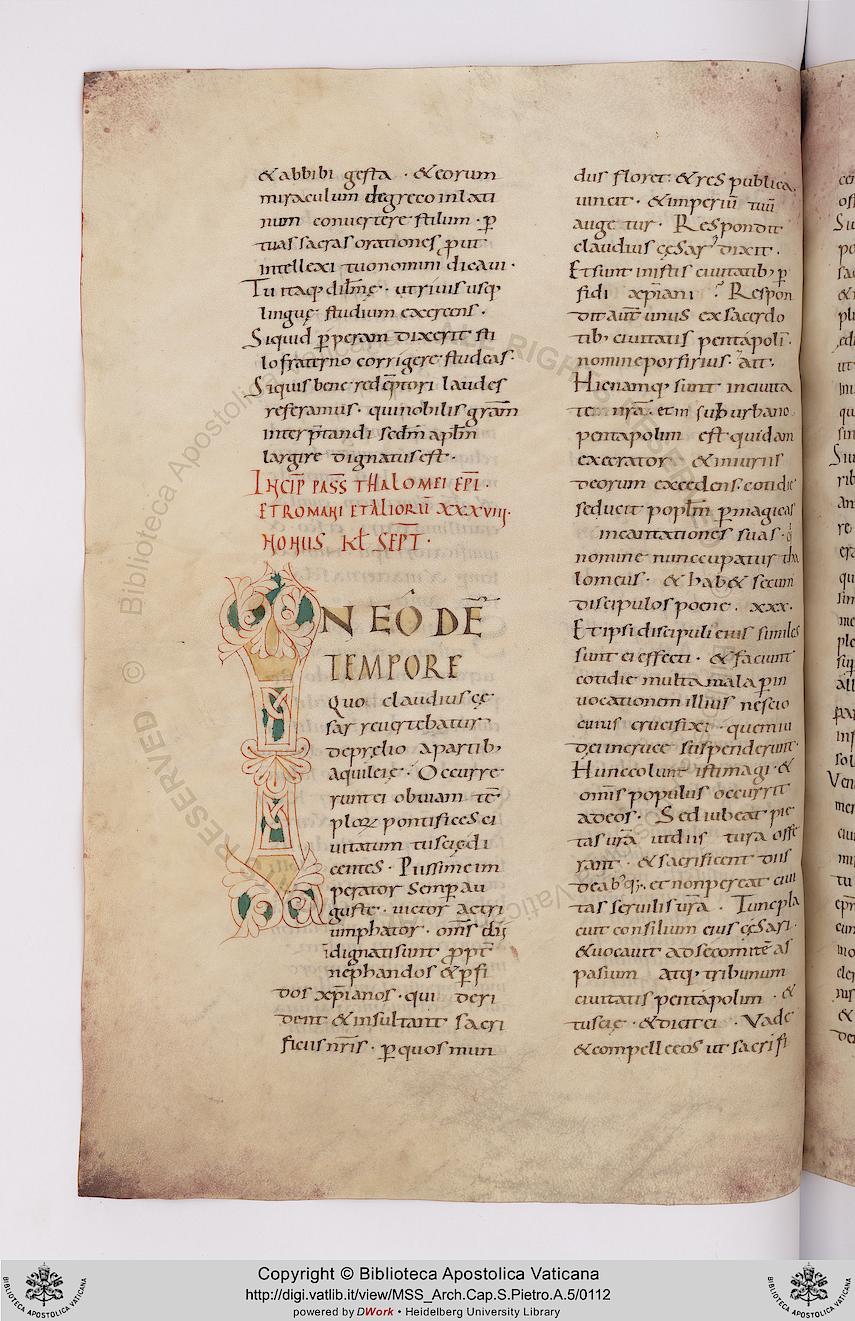 & abbibi gesta · & eorum
miraculum degreco inlati
num convertere stilum · p̄
tuas sacras orationes put
intellexi tuo nomini dicavi ·
Tu itaq; dilm̄e · utriususq;
lingue studium exercens ·
Siquid p̄peram dixerit sti
lo fraterno corrigere studeas ·
Siquis bene redēptori laudes
referamus · quinobilis gram̄
interp̄tandi sedm̄ aplm̄
largire dignatus est ·
INCIP̄ PASS̄ THALOMEI EP̄I ·
ET ROMANI ET ALIORŪ XXXVIII·
NONUS KL̄ SEPT̄ ·
IN EO DĒ
TEMPORE
Quo claudius ce
sar revertebatur
deprelio a partib;
aquileie · Occurre
runt ei obviam tē
ploꝝ pontifices ci
vitatum tuscie di
centes · Piissime im
perator Semp̄ au
guste · victor ac tri
umphator · om̄s dii
īdignati sunt p̄pt̄
nephandos & p̄fi
dos xp̄ianos · qui deri
dent & insultant sacri
ficiis nr̄is · p̄ quos mun
dus floret · & res publica
vincit · & imperiū tuū
augetur · Respondit
claudius cesar dixit ·
Et sunt inistis civitatib; p̄
fidi xp̄iani ? Respon
dit aut̄ unus ex sacerdo
tib; civitatis pentapoli ·
nomine porfirius · ait ·
Hienamq; sunt incivita
te nr̄a · et in suburbano
pentapolim est quidam
execrator & iniuriis
deorum excedens · cotidie
seducit poplm̄ p̄magicas
incantationes suas · q̄
nomine nunccupatur tha
lomeus · & hab& secum
discipulos poene · xxx ·
Et ipsi discipuli eius similes
sunt ei effecti · & faciunt
cotidie multa mala p̄ in
vocationem illius nescio
cuius crucifixi · quem iu
dei incruce suspenderunt ·
Hunc colunt isti magi · &
om̄is populus occurrit
adeos · Sed iubeat pie
tas ur̄a ut diis tura offe
rant · & sacrificent diis
deabusq; · et non pereat civi
tas servilis ur̄a · Tunc pla
cuit consilium eius cesari ·
& vocavit ad se comitē as
pasium atq; tribunum
civitatis pentapolim · &
tuscie · & dicit ei · Vade
& compelle eos ut sacrifi
Copyright © Biblioteca Apostolica Vaticana
http://digi.vatlib.it/view/MSS_Arch.Cap.S.Pietro.A.5/0112
powered by DWork • Heidelberg University Library